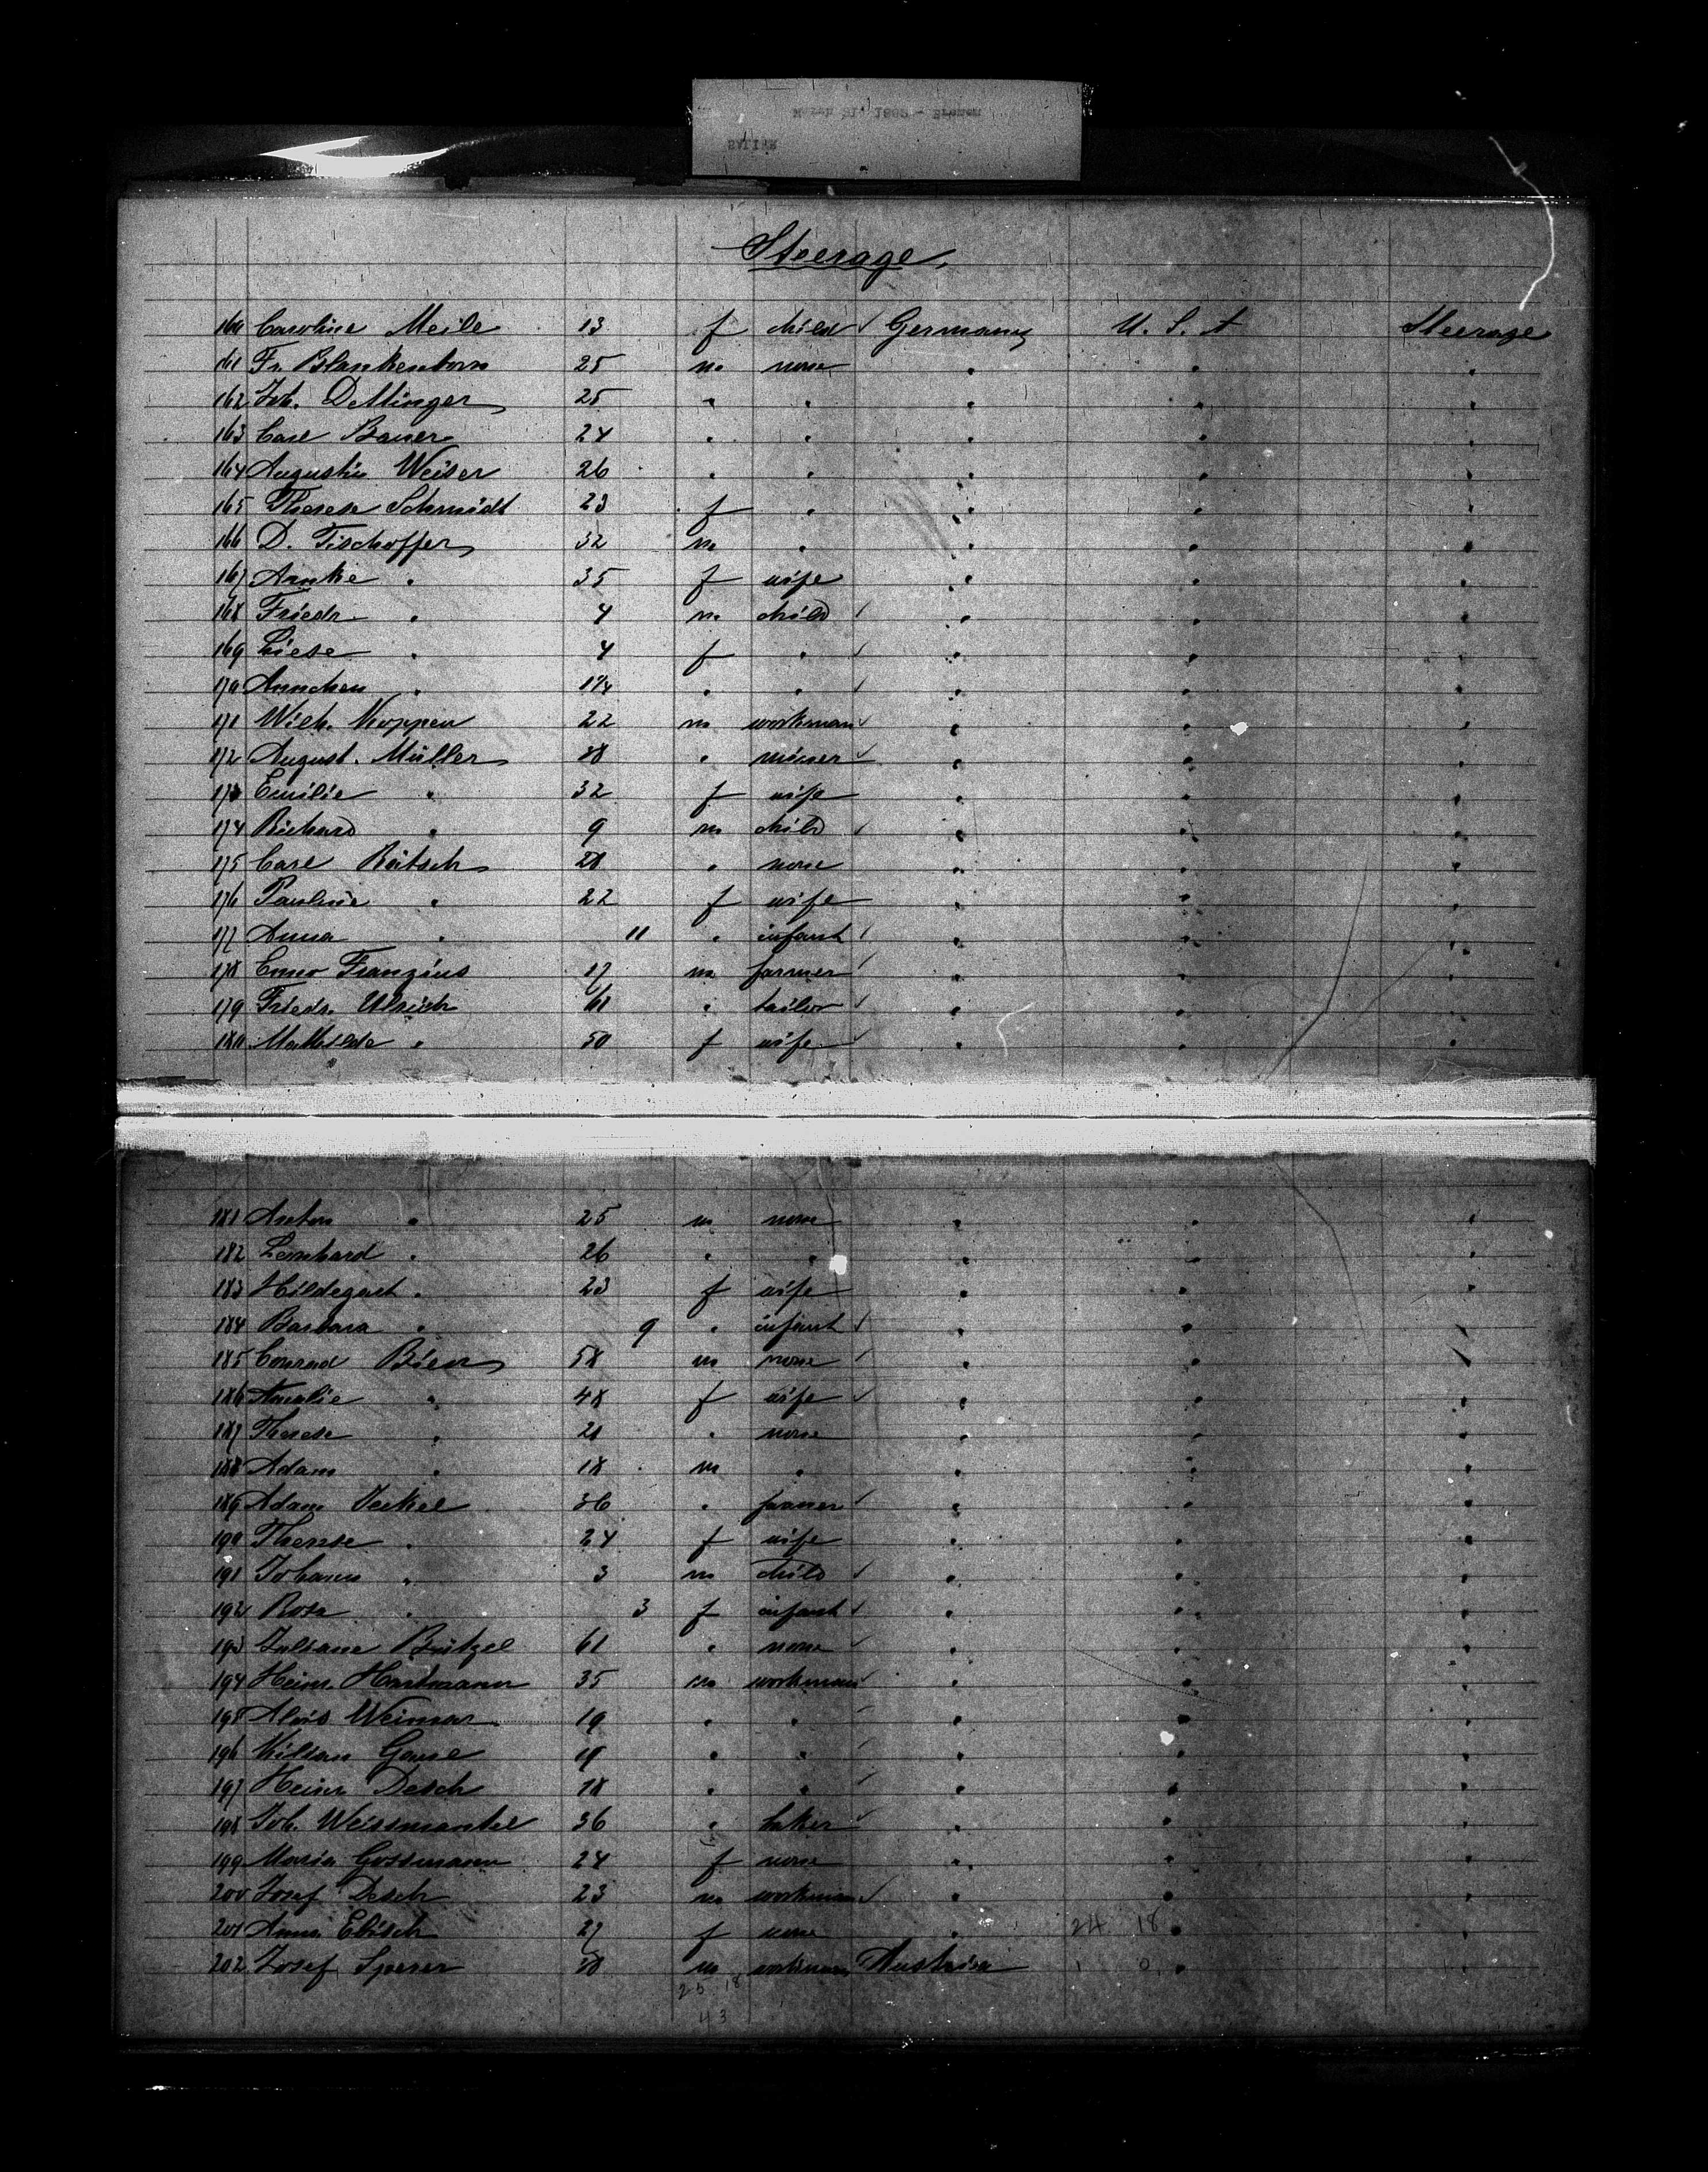 Steerage.
160 Caroline Meile 13 f child ✓ Germany U. S. A Steerage
161 Fr. Blankenborn 25 m none " " "
162 Joh. Dettinger 25 " " " " "
163 Carl Bauer 24 " " " " "
164 Augustin Weiser 26 " " " " "
165 Therese Schmidt 23 f " " " "
166 D. Tischoffer 32 m " " " "
167 Annke " 35 f wife " " "
168 Friedr. " 4 m child ✓ " " "
169 Liese " 4 f " ✓ " " "
170 Annchen " " " ✓ " " "
171 Wilh. Koppen 22 m workman ✓ " " "
172 August. Müller 38 " miner ✓ " " "
173 Emilie " 32 f wife " " "
174 Richard " 9 m child ✓ " " "
175 Carl Ratsch 28 " none " " "
176 Pauline " 22 f wife " " "
177 Anna " 11 " infant ✓ " " "
178 Enno Franzius 17 m farmer ✓ " " "
179 Friedr. Ulrich 61 " tailor ✓ " " "
180 Mathilde " 50 f wife ✓ " " "
181 Anton " 25 m none " " "
182 Leonhard " 26 " " " " "
183 Hildegart " 23 f wife " " "
184 Barbara " 9 " infant ✓ " " "
185 Conrad Bien 58 m none ✓ " " "
186 Amalie " 48 f wife ✓ " " "
187 Therese " 21 " none " " "
188 Adam " 18 m " " " "
189 Adam 36 " farmer ✓ " " "
190 Therese " 24 f wife " " "
191 Johann " 3 m child ✓ " " "
192 Rosa " 3 f infant ✓ " " "
193 Juliane 61 " none ✓ " " "
194 Heinr. Hartmann 35 m workman ✓ " " "
195 Alois Weimar 19 " " ✓ " " "
196 Kilian 19 " " ✓ " " "
197 Heinr Desch 18 " " ✓ " " "
198 Joh. Weissmantel 36 " baker ✓ " " "
199 Maria Gossmann 24 f none " " "
200 Josef Desch 23 m workman ✓ " " "
201 Anna Elisch 27 f none " 24 18 " "
202 Josef Sperer 38 m workman Austria 1 0 " "
25 18
43